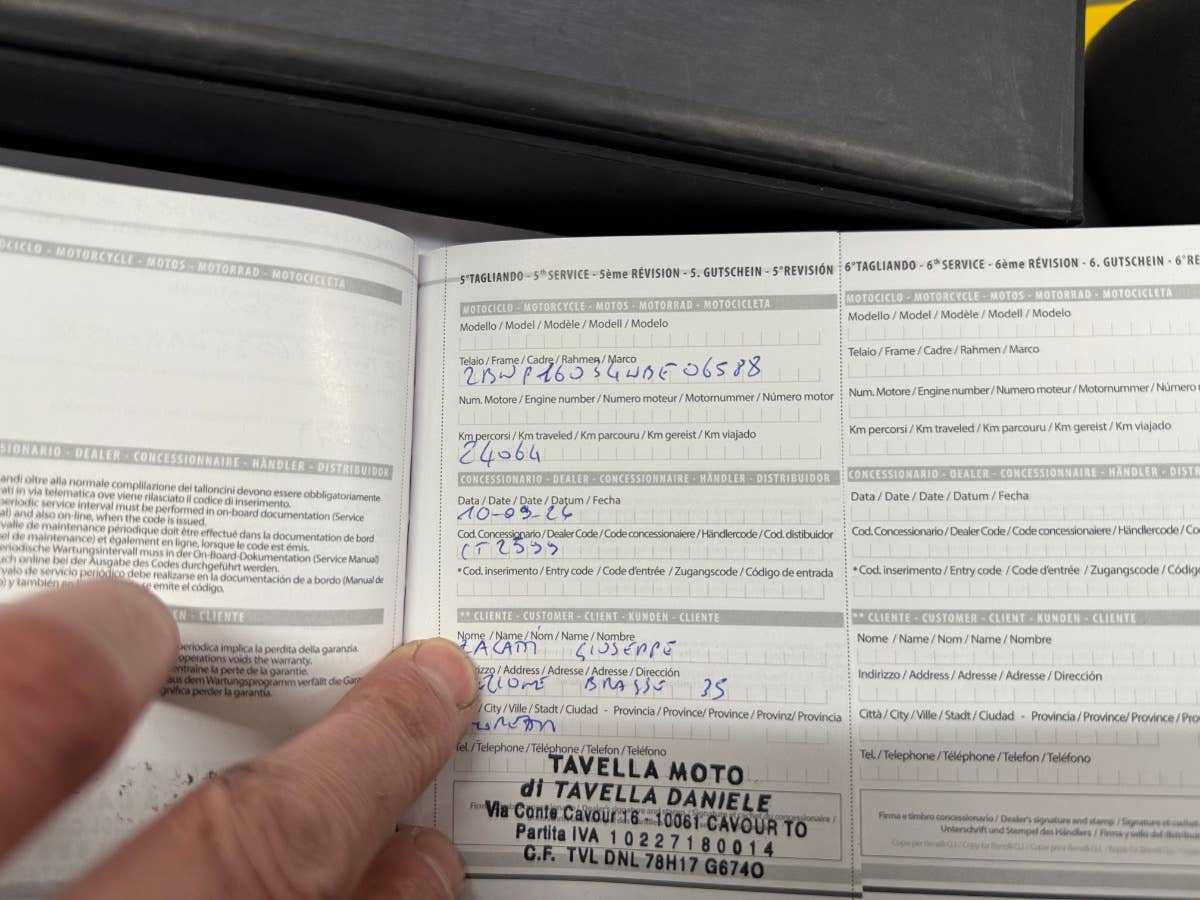 OCICLO - MOTORCYCLE - MOTOS - MOTORRAD - MOTOCICLETA
SIONARIO - DEALER - CONCESSIONNAIRE - HÄNDLER - DISTRIBUIDOR
andi oltre alla normale compilazione dei talloncini devono essere obbligatoriamente
ati in via telematica ove viene rilasciato il codice di inserimento.
periodic service interval must be performed in on-board documentation (Service
al) and also on-line, when the code is issued.
valle de maintenance périodique doit être effectué dans la documentation de bord
el de maintenance) et également en ligne, lorsque le code est émis.
eriodische Wartungsintervall muss in der On-Board-Dokumentation (Service Manual)
uch online bei der Ausgabe des Codes durchgeführt werden.
valo de servicio periódico debe realizarse en la documentación de a bordo (Manual de
) y también en se emite el código.
EN - CLIENTE
periodica implica la perdita della garanzia.
operations voids the warranty.
entraîne la perte de la garantie.
aus dem Wartungsprogramm verfällt die Gar
gnifica perder la garantía.
5°TAGLIANDO - 5th SERVICE - 5ème RÉVISION - 5. GUTSCHEIN - 5°REVISIÓN
MOTOCICLO - MOTORCYCLE - MOTOS - MOTORRAD - MOTOCICLETA
Modello / Model / Modèle / Modell / Modelo
Telaio / Frame / Cadre / Rahmen / Marco
Num. Motore / Engine number / Numero moteur / Motornummer / Número motor
Km percorsi / Km traveled / Km parcouru / Km gereist / Km viajado
24064
CONCESSIONARIO - DEALER - CONCESSIONNAIRE - HÄNDLER - DISTRIBUIDOR
Data / Date / Date / Datum / Fecha
Cod. Concessionario / Dealer Code / Code concessionaiere / Händlercode / Cod. distibuidor
*Cod. inserimento / Entry code / Code d'entrée / Zugangscode / Código de entrada
** CLIENTE - CUSTOMER - CLIENT - KUNDEN - CLIENTE
Nome / Name / Nom / Name / Nombre
GIUSEPPE
rizzo / Address / Adresse / Adresse / Dirección
BRASSE 35
/ City / Ville / Stadt / Ciudad - Provincia / Province/ Province / Provinz/ Provincia
Tel. / Telephone / Téléphone / Telefon / Teléfono
TAVELLA MOTO
di TAVELLA DANIELE
Via Conte Cavour 16 - 10061 CAVOUR TO
Partita IVA 10227180014
C.F. TVL DNL 78H17 G674O
6°TAGLIANDO - 6th SERVICE - 6ème RÉVISION - 6. GUTSCHEIN - 6°RE
MOTOCICLO - MOTORCYCLE - MOTOS - MOTORRAD - MOTOCICLETA
Modello / Model / Modèle / Modell / Modelo
Telaio / Frame / Cadre / Rahmen / Marco
Num. Motore / Engine number / Numero moteur / Motornummer / Número
Km percorsi / Km traveled / Km parcouru / Km gereist / Km viajado
CONCESSIONARIO - DEALER - CONCESSIONNAIRE - HÄNDLER - DIST
Data / Date / Date / Datum / Fecha
Cod. Concessionario / Dealer Code / Code concessionaiere / Händlercode / Co
*Cod. inserimento / Entry code / Code d'entrée / Zugangscode / Código
** CLIENTE - CUSTOMER - CLIENT - KUNDEN - CLIENTE
Nome / Name / Nom / Name / Nombre
Indirizzo / Address / Adresse / Adresse / Dirección
Città / City / Ville / Stadt / Ciudad - Provincia / Province/ Province / Pro
Tel. / Telephone / Téléphone / Telefon / Teléfono
Firma e timbro concessionario / Dealer's signature and stamp / Signature et cachet
Unterschrift und Stempel des Händlers / Firma y sello del distrib